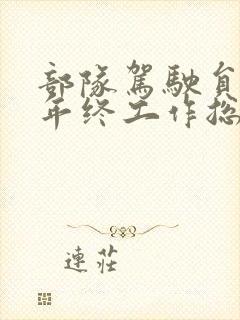 部隊駕駛員
年终工作总
連莊